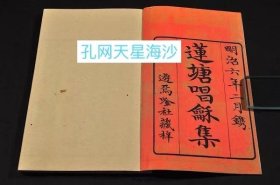 明治六年二月鐫
蓮塘唱龢集
游焉唫社藏梓
孔网天星海沙